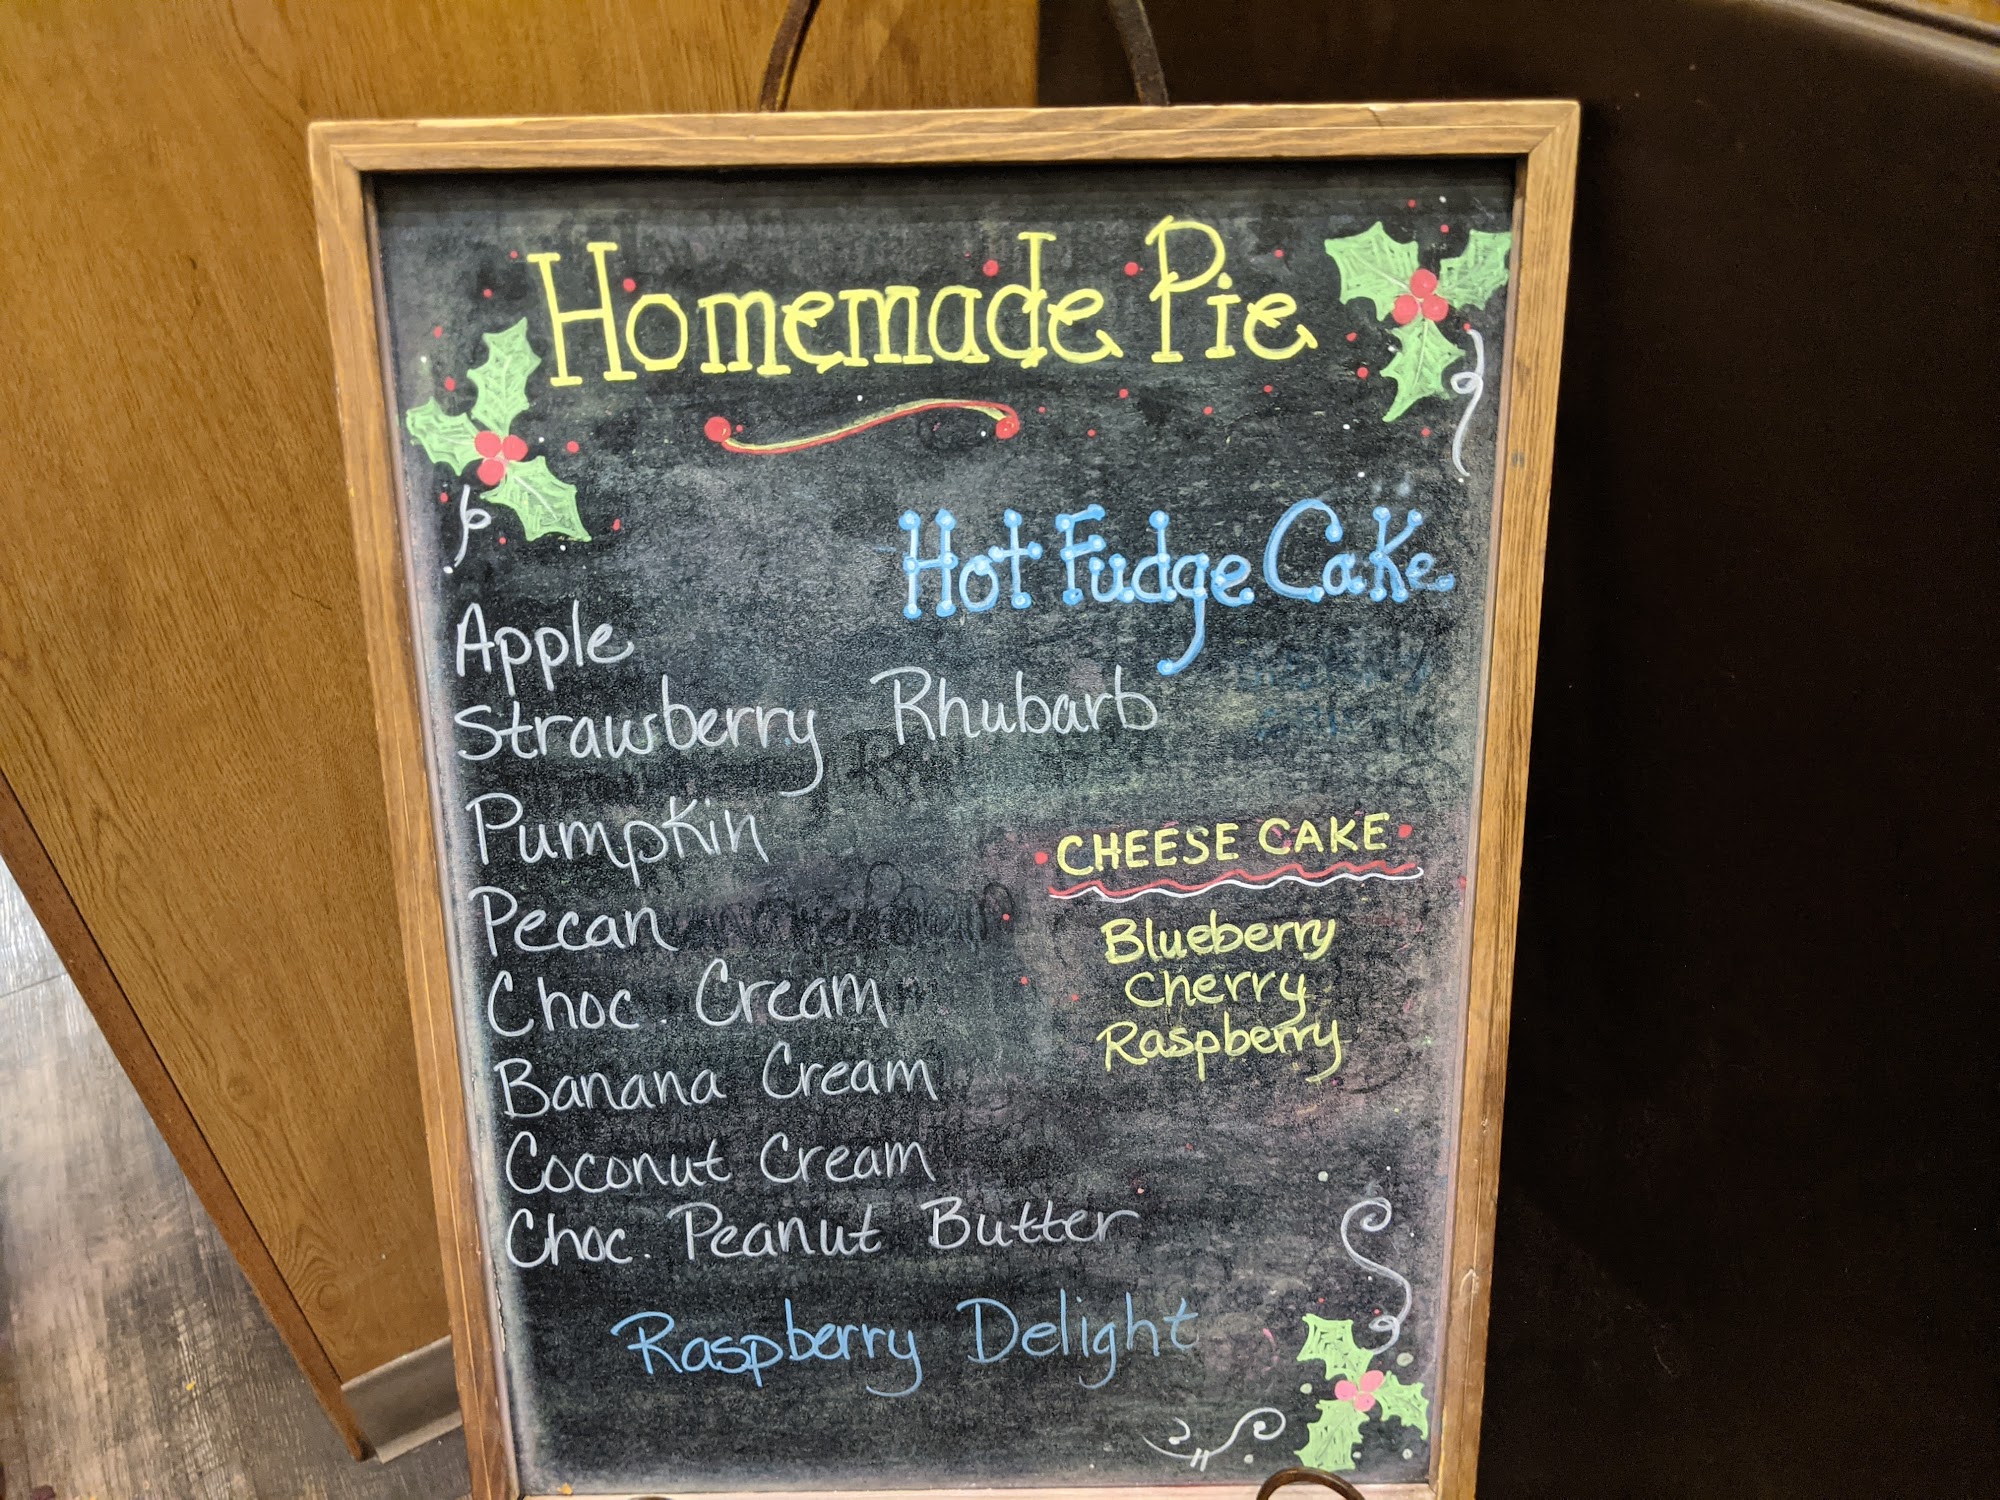 Homemade Pie
Hot Fudge Cake
Apple
Strawberry Rhubarb
Pumpkin
Pecan
Choc. Cream
Banana Cream
Coconut Cream
Choc. Peanut Butter
CHEESE CAKE
Blueberry
Cherry
Raspberry
Raspberry Delight